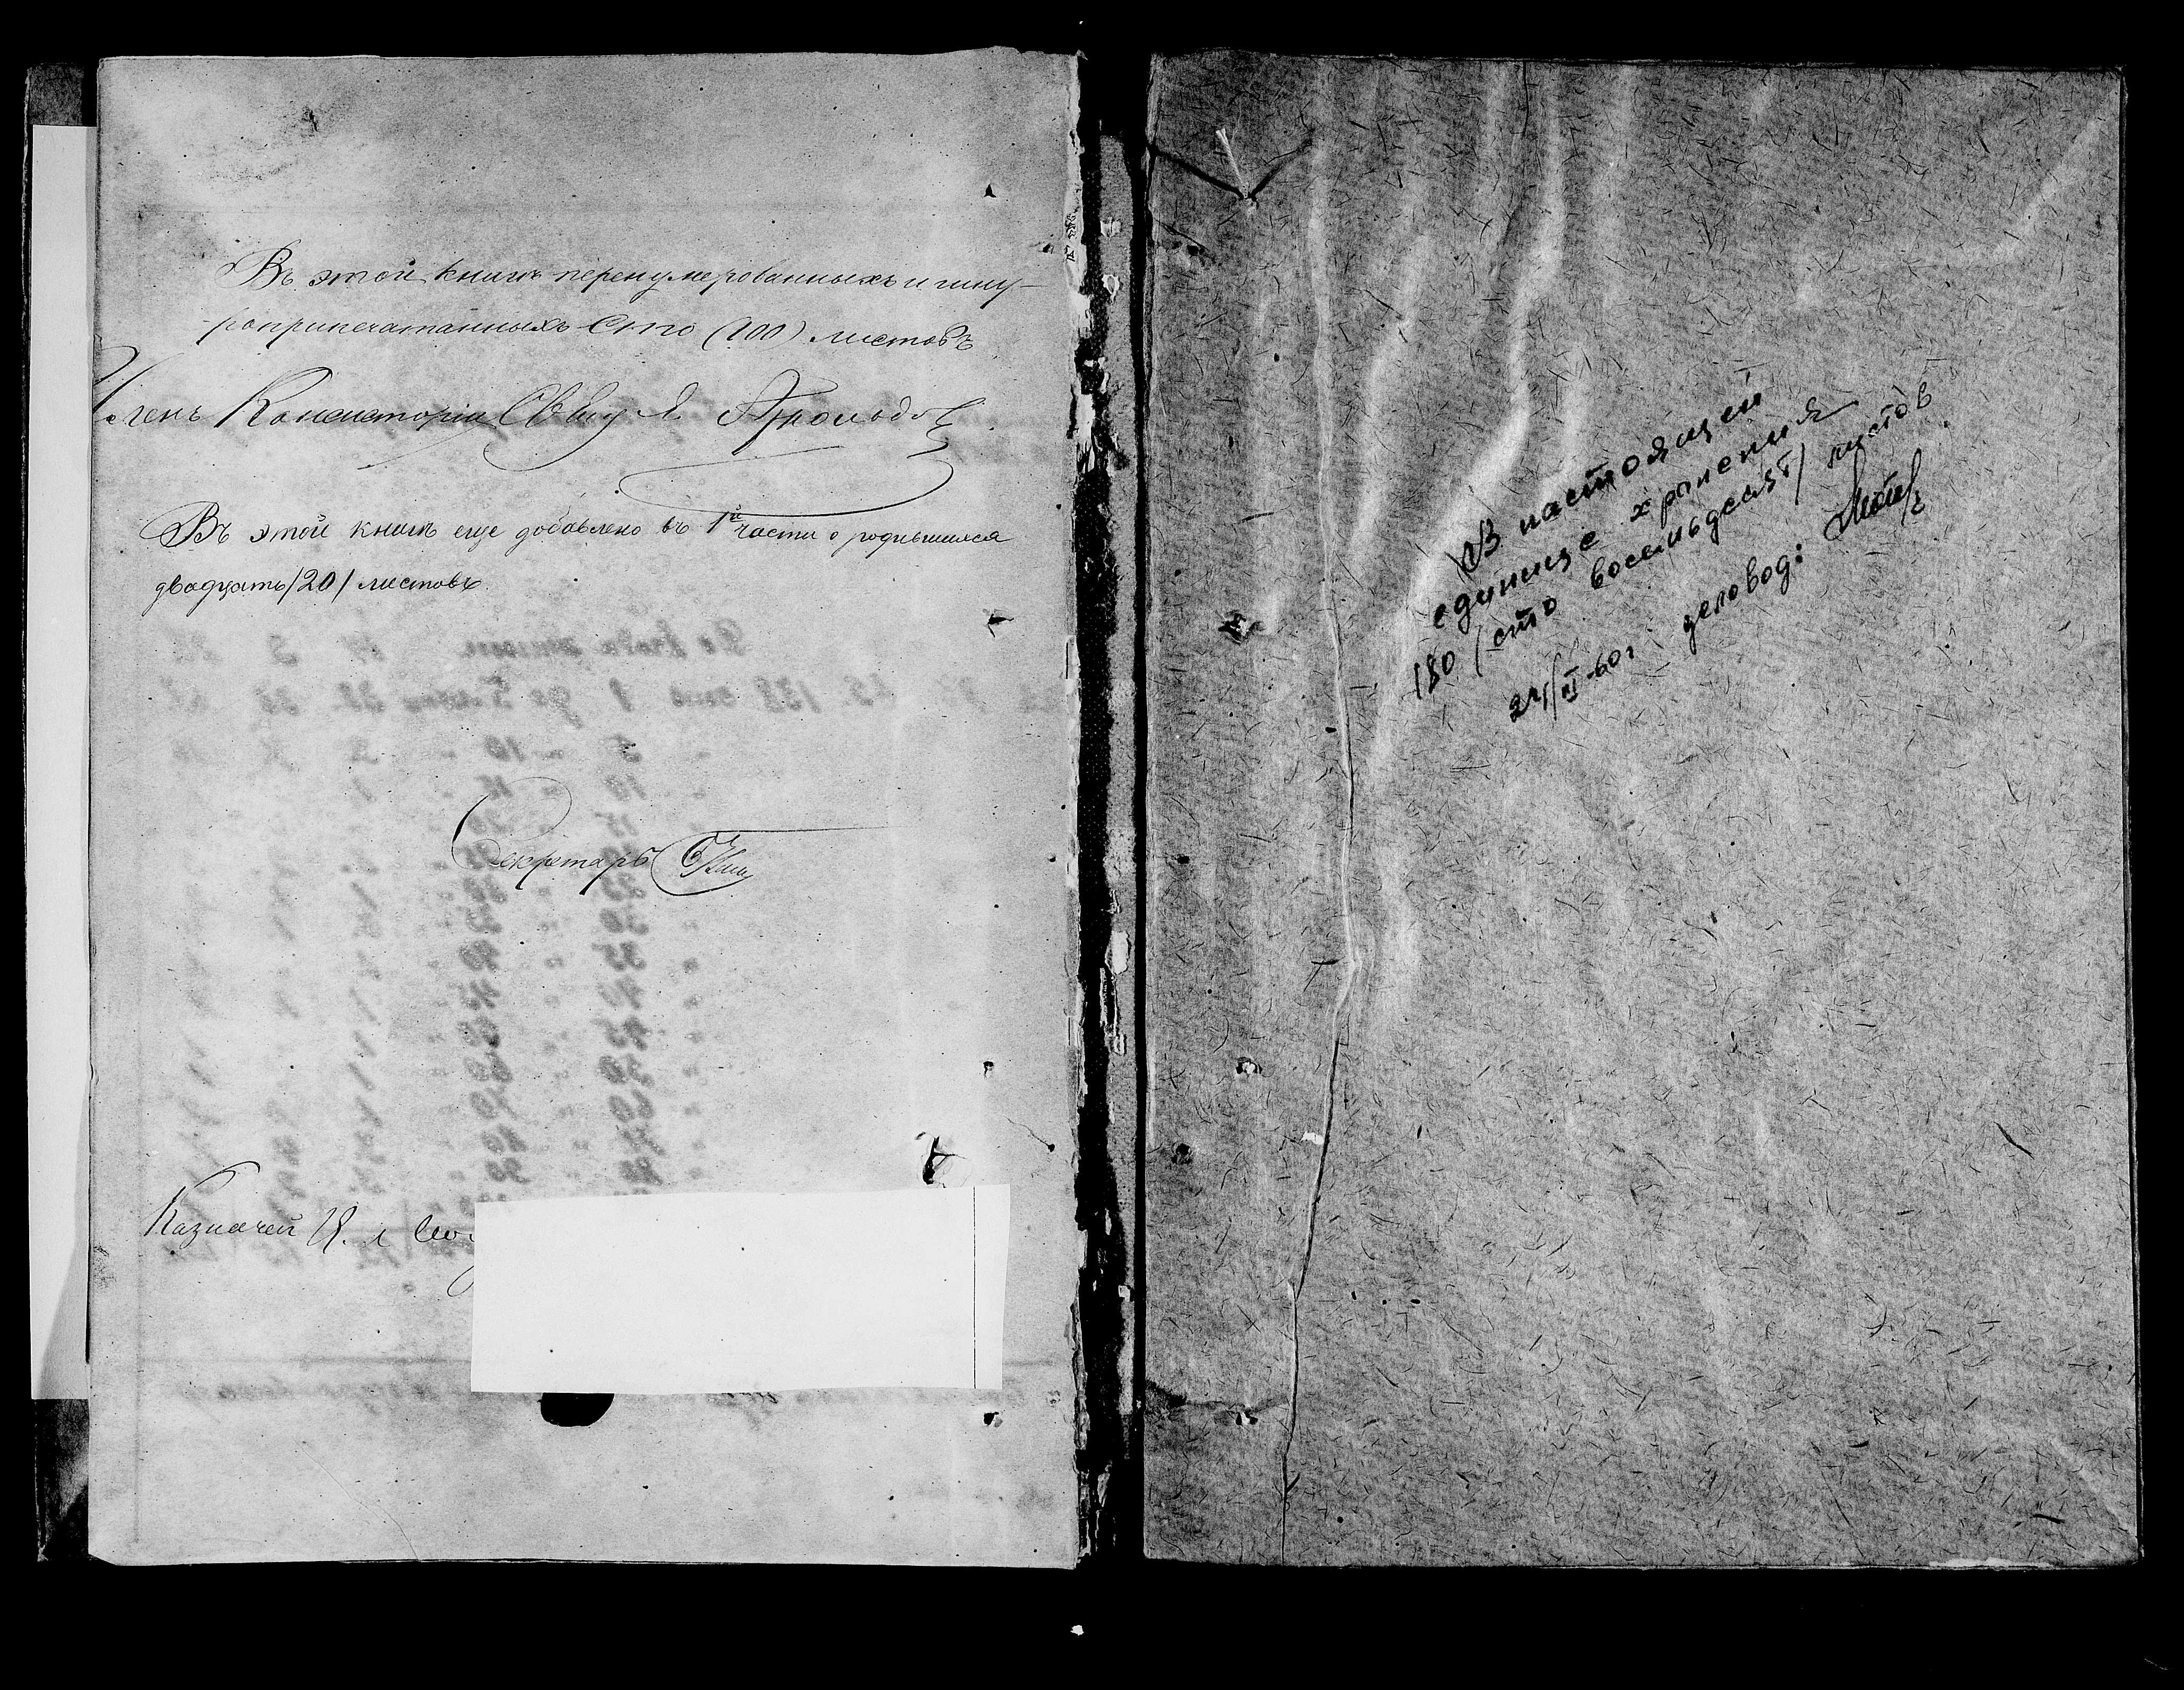 Въ этой книгѣ перенумерованныхъ и шну-
роприпечатанныхъ Сто (100) листовъ
Членъ Консисторіи Свящ
Въ этой книгѣ еще добавлено въ 1й части о родившихся
двадцать /20/ листовъ.
Секретарь
Казначей
В настоящей
единице хранения
180 /сто восемьдесят/ листов
24/VI-60г. деловод: